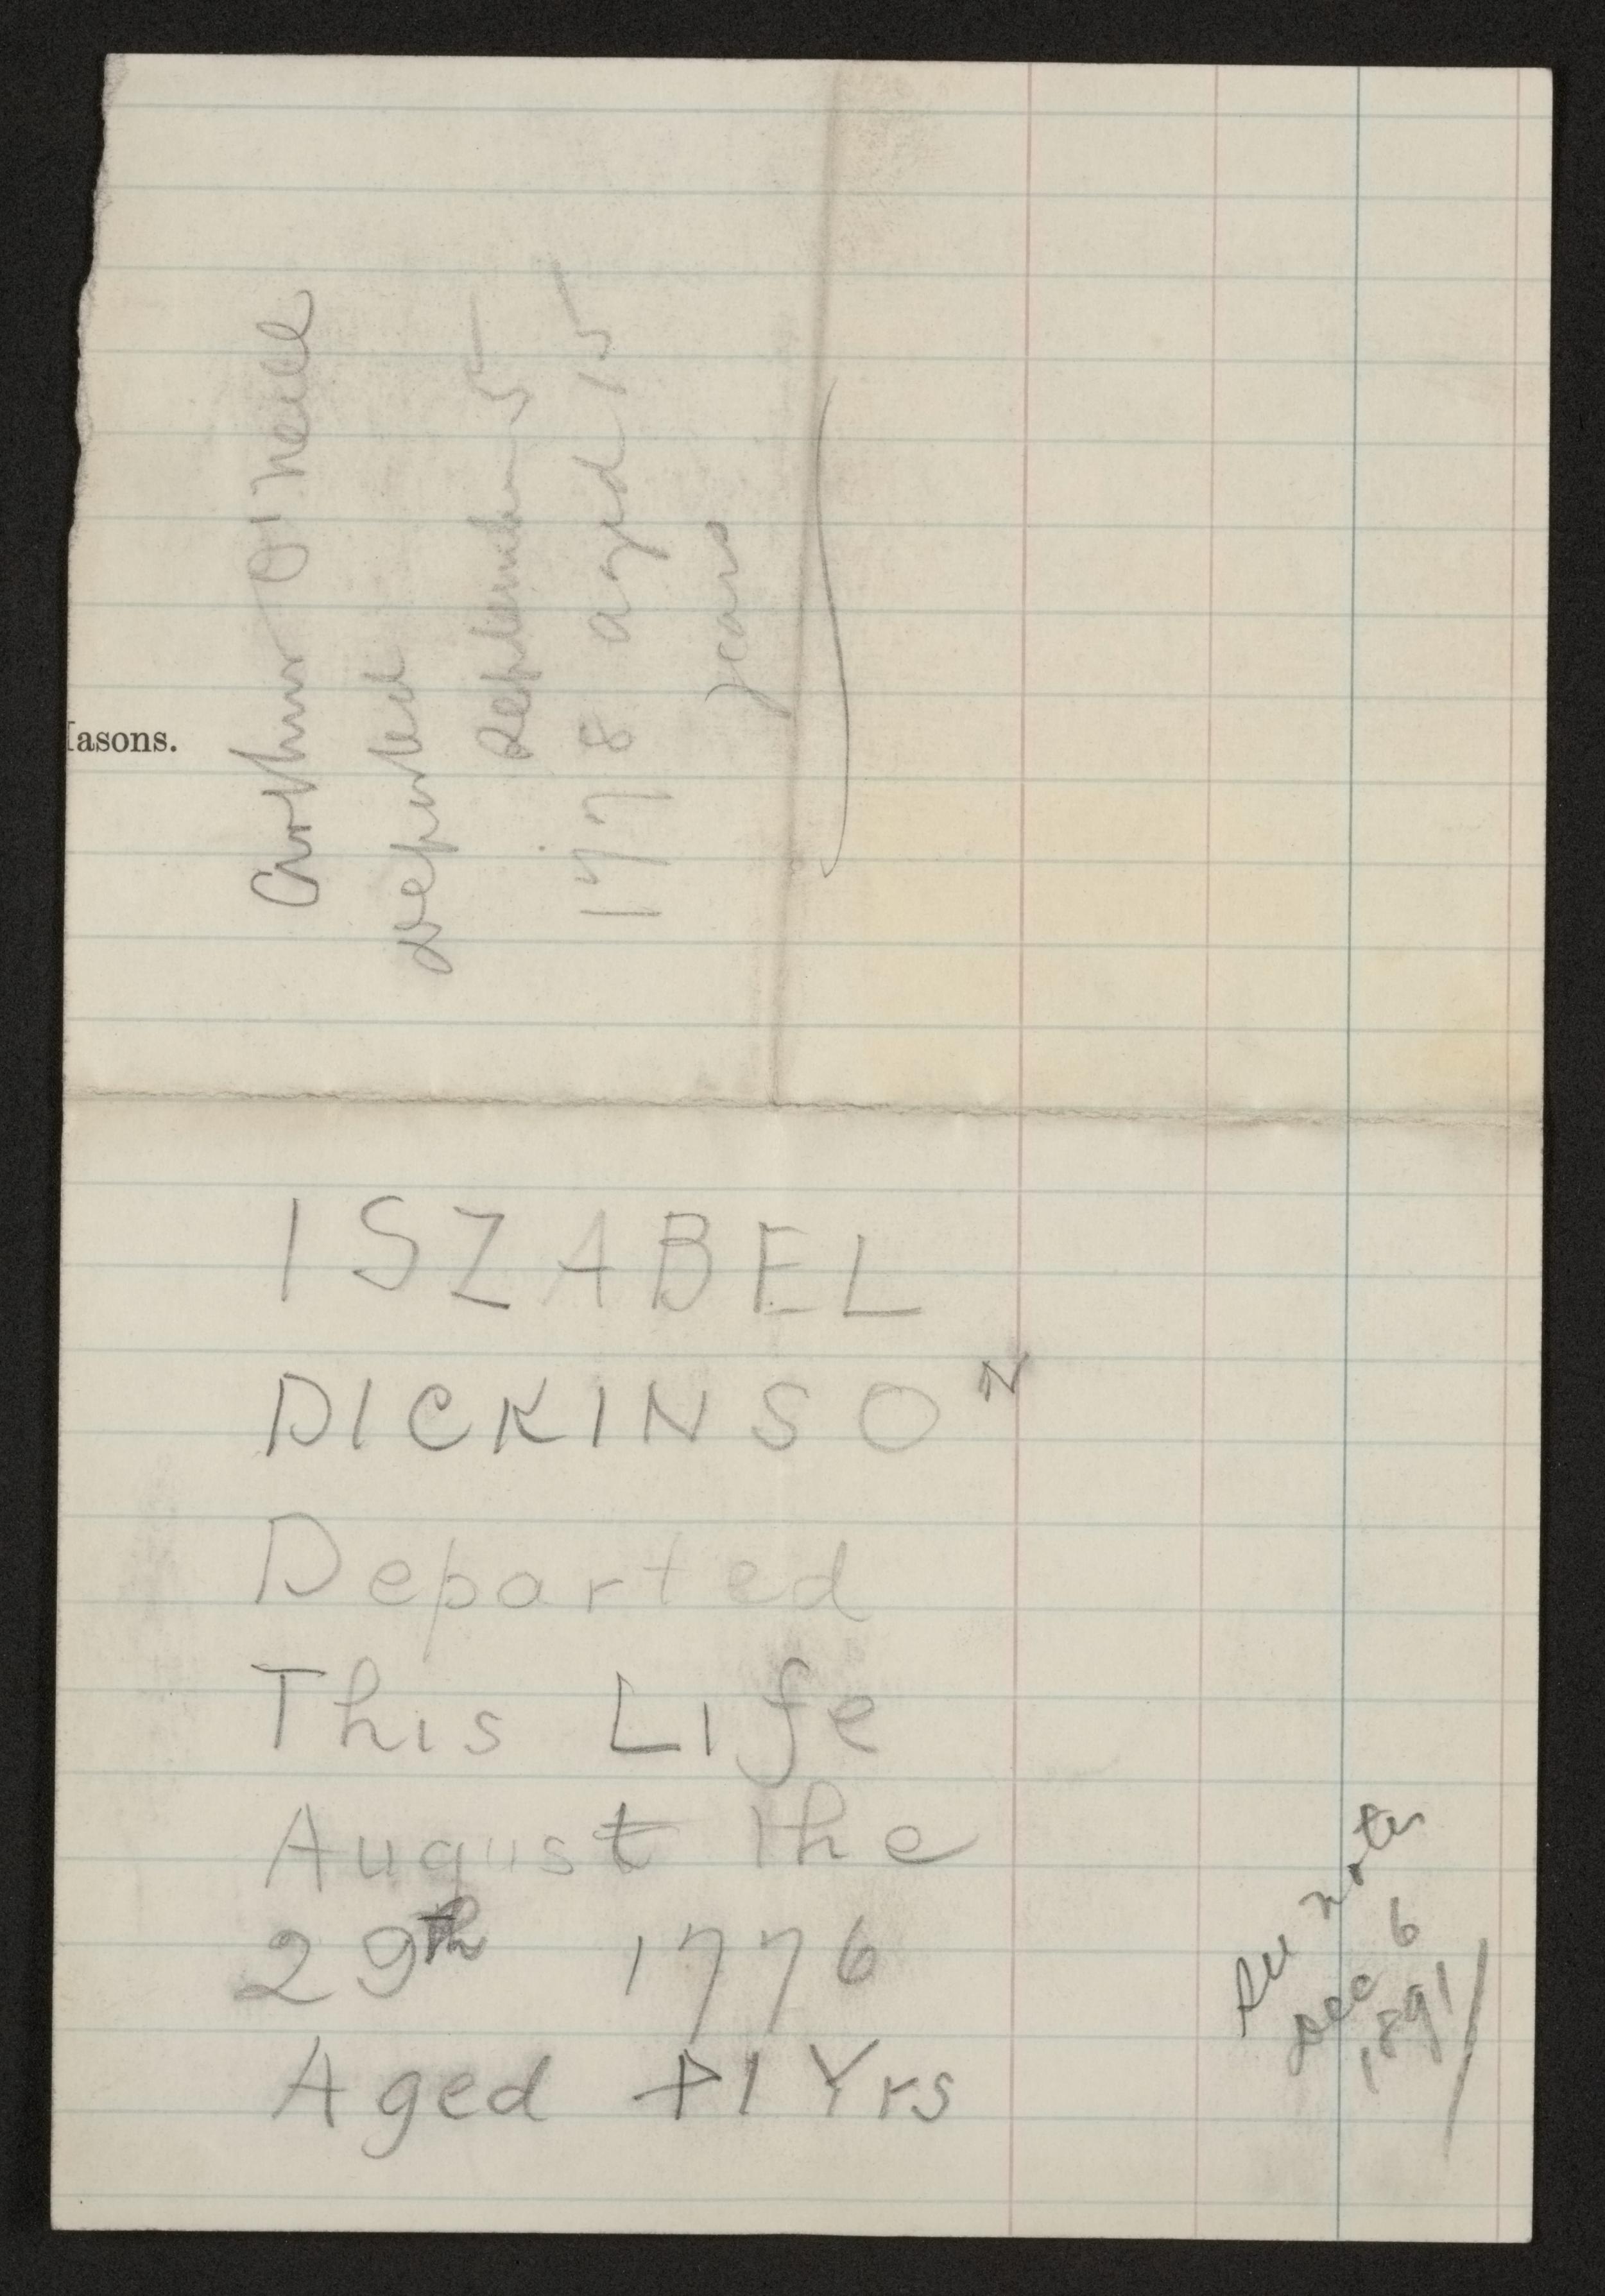 Arthur O'Neill
departed
September 5
1778 aged 15
years
Iasons.
ISZABEL
DICKINSON
Departed
This Life
August the
29th 1776
Aged 41 Yrs
See notes
Dec 6
1891